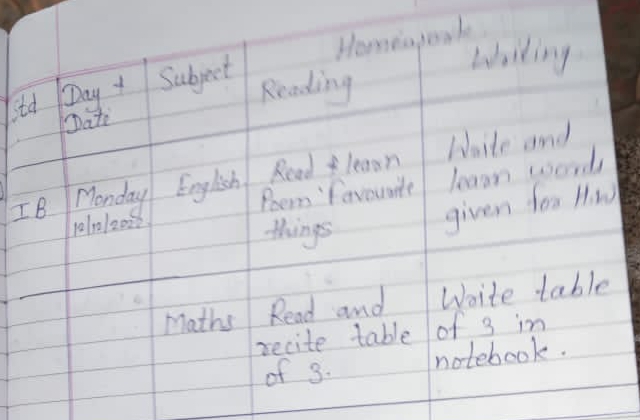 Homework
Std
Day +
Date
Subject
Reading
Writing
I B
Monday
12/12/2022
English
Read & learn
Poem 'Favourite
things
Write and
learn words
given for H.W
Maths
Read and
recite table
of 3.
Write table
of 3 in
notebook.